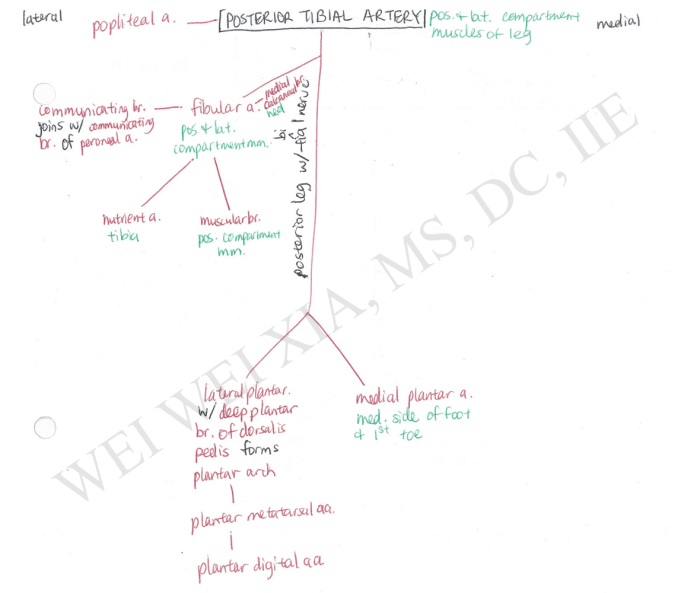 lateral
popliteal a.
POSTERIOR TIBIAL ARTERY
pos. & lat. compartment
muscles of leg
medial
communicating br.
joins w/ communicating
br. of peroneal a.
fibular a.
medial
calcaneal br.
heel
pos & lat.
compartment mm.
nutrient a.
tibia
muscular br.
pos. compartment
mm.
posterior leg w/ tibial nerve
lateral plantar.
w/ deep plantar
br. of dorsalis
pedis forms
plantar arch
plantar metatarsal aa.
plantar digital aa
medial plantar a.
med. side of foot
& 1st toe
WEI WEI XIA, MS, DC, IIE